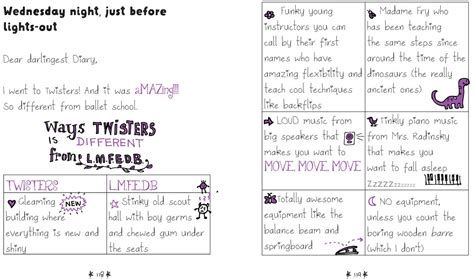 Wednesday night, just before
lights-out
Dear darlingest Diary,
I went to Twisters! And it was aMAZing!!!
So different from ballet school.
Ways TWISTERS
IS DIFFERENT
from L.M.F.E.D.B.
TWISTERS
L.M.F.E.D.B.
Gleaming NEW
building where
everything is new and
shiny
Stinky old scout
hall with boy germs
and chewed gum under
the seats
* 118 *
Funky young
instructors you can
call by their first
names who have
amazing flexibility and
teach cool techniques
like backflips
Madame Fry who
has been teaching
the same steps since
around the time of the
dinosaurs (the really
ancient ones)
LOUD music from
big speakers that
makes you want to
MOVE, MOVE, MOVE
Tinkly piano music
from Mrs. Radinsky
that makes you
want to fall asleep
Zzzzzzzzzzz
Totally awesome
equipment like the
balance beam and
springboard
NO equipment,
unless you count the
boring wooden barre
(which I don't)
* 119 *